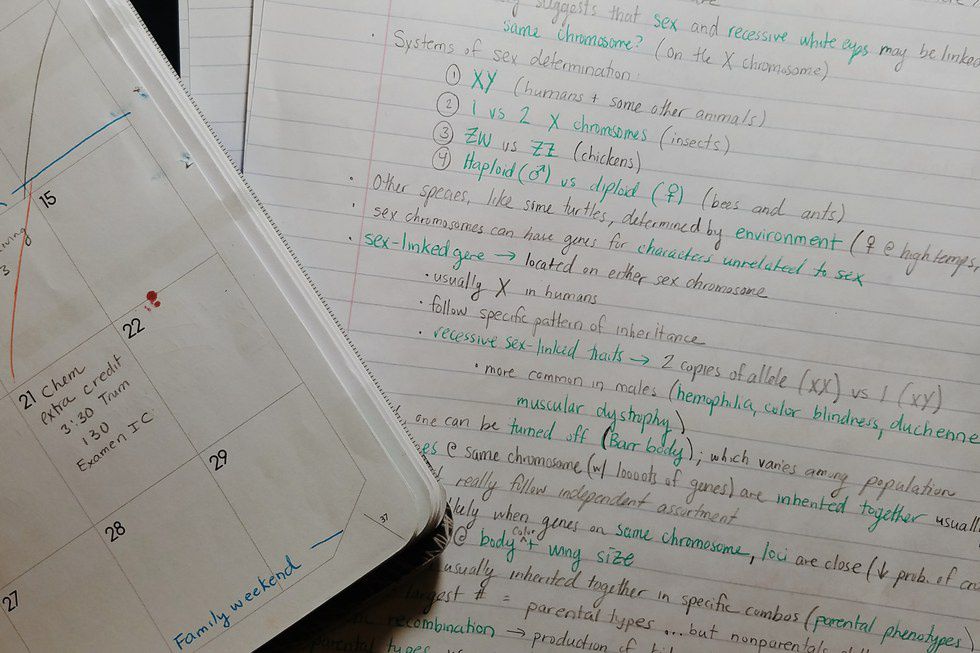 15
22
21 Chem
extra credit
3:30 Trum
130
Examen IC
29
28
27
37
Family weekend
suggests that sex and recessive white eyes may be linked
same chromosome? (on the X chromosome)
· Systems of sex determination:
① XY (humans + some other animals)
② 1 vs 2 X chromsomes (insects)
③ ZW vs ZZ (chickens)
④ Haploid (♂) vs diploid (♀) (bees and ants)
· Other species, like some turtles, determined by environment (♀ @ high temps,
· sex chromosomes can have genes for characters unrelated to sex
· sex-linked gene → located on either sex chromosome
· usually X in humans
· follow specific pattern of inheritance
· recessive sex-linked traits → 2 copies of allele (XX) vs 1 (XY)
· more common in males (hemophilia, color blindness, duchenne
muscular dystrophy)
one can be turned off (Barr body); which varies among population
es @ same chromosome (w/ looots of genes) are inherited together usually
really follow independent assortment
likely when genes on same chromosome, loci are close (↓ prob. of
@ body color + wing size
usually inherited together in specific combos (parental phenotypes)
largest # = parental types ... but nonparentals
recombination → production of
parental types